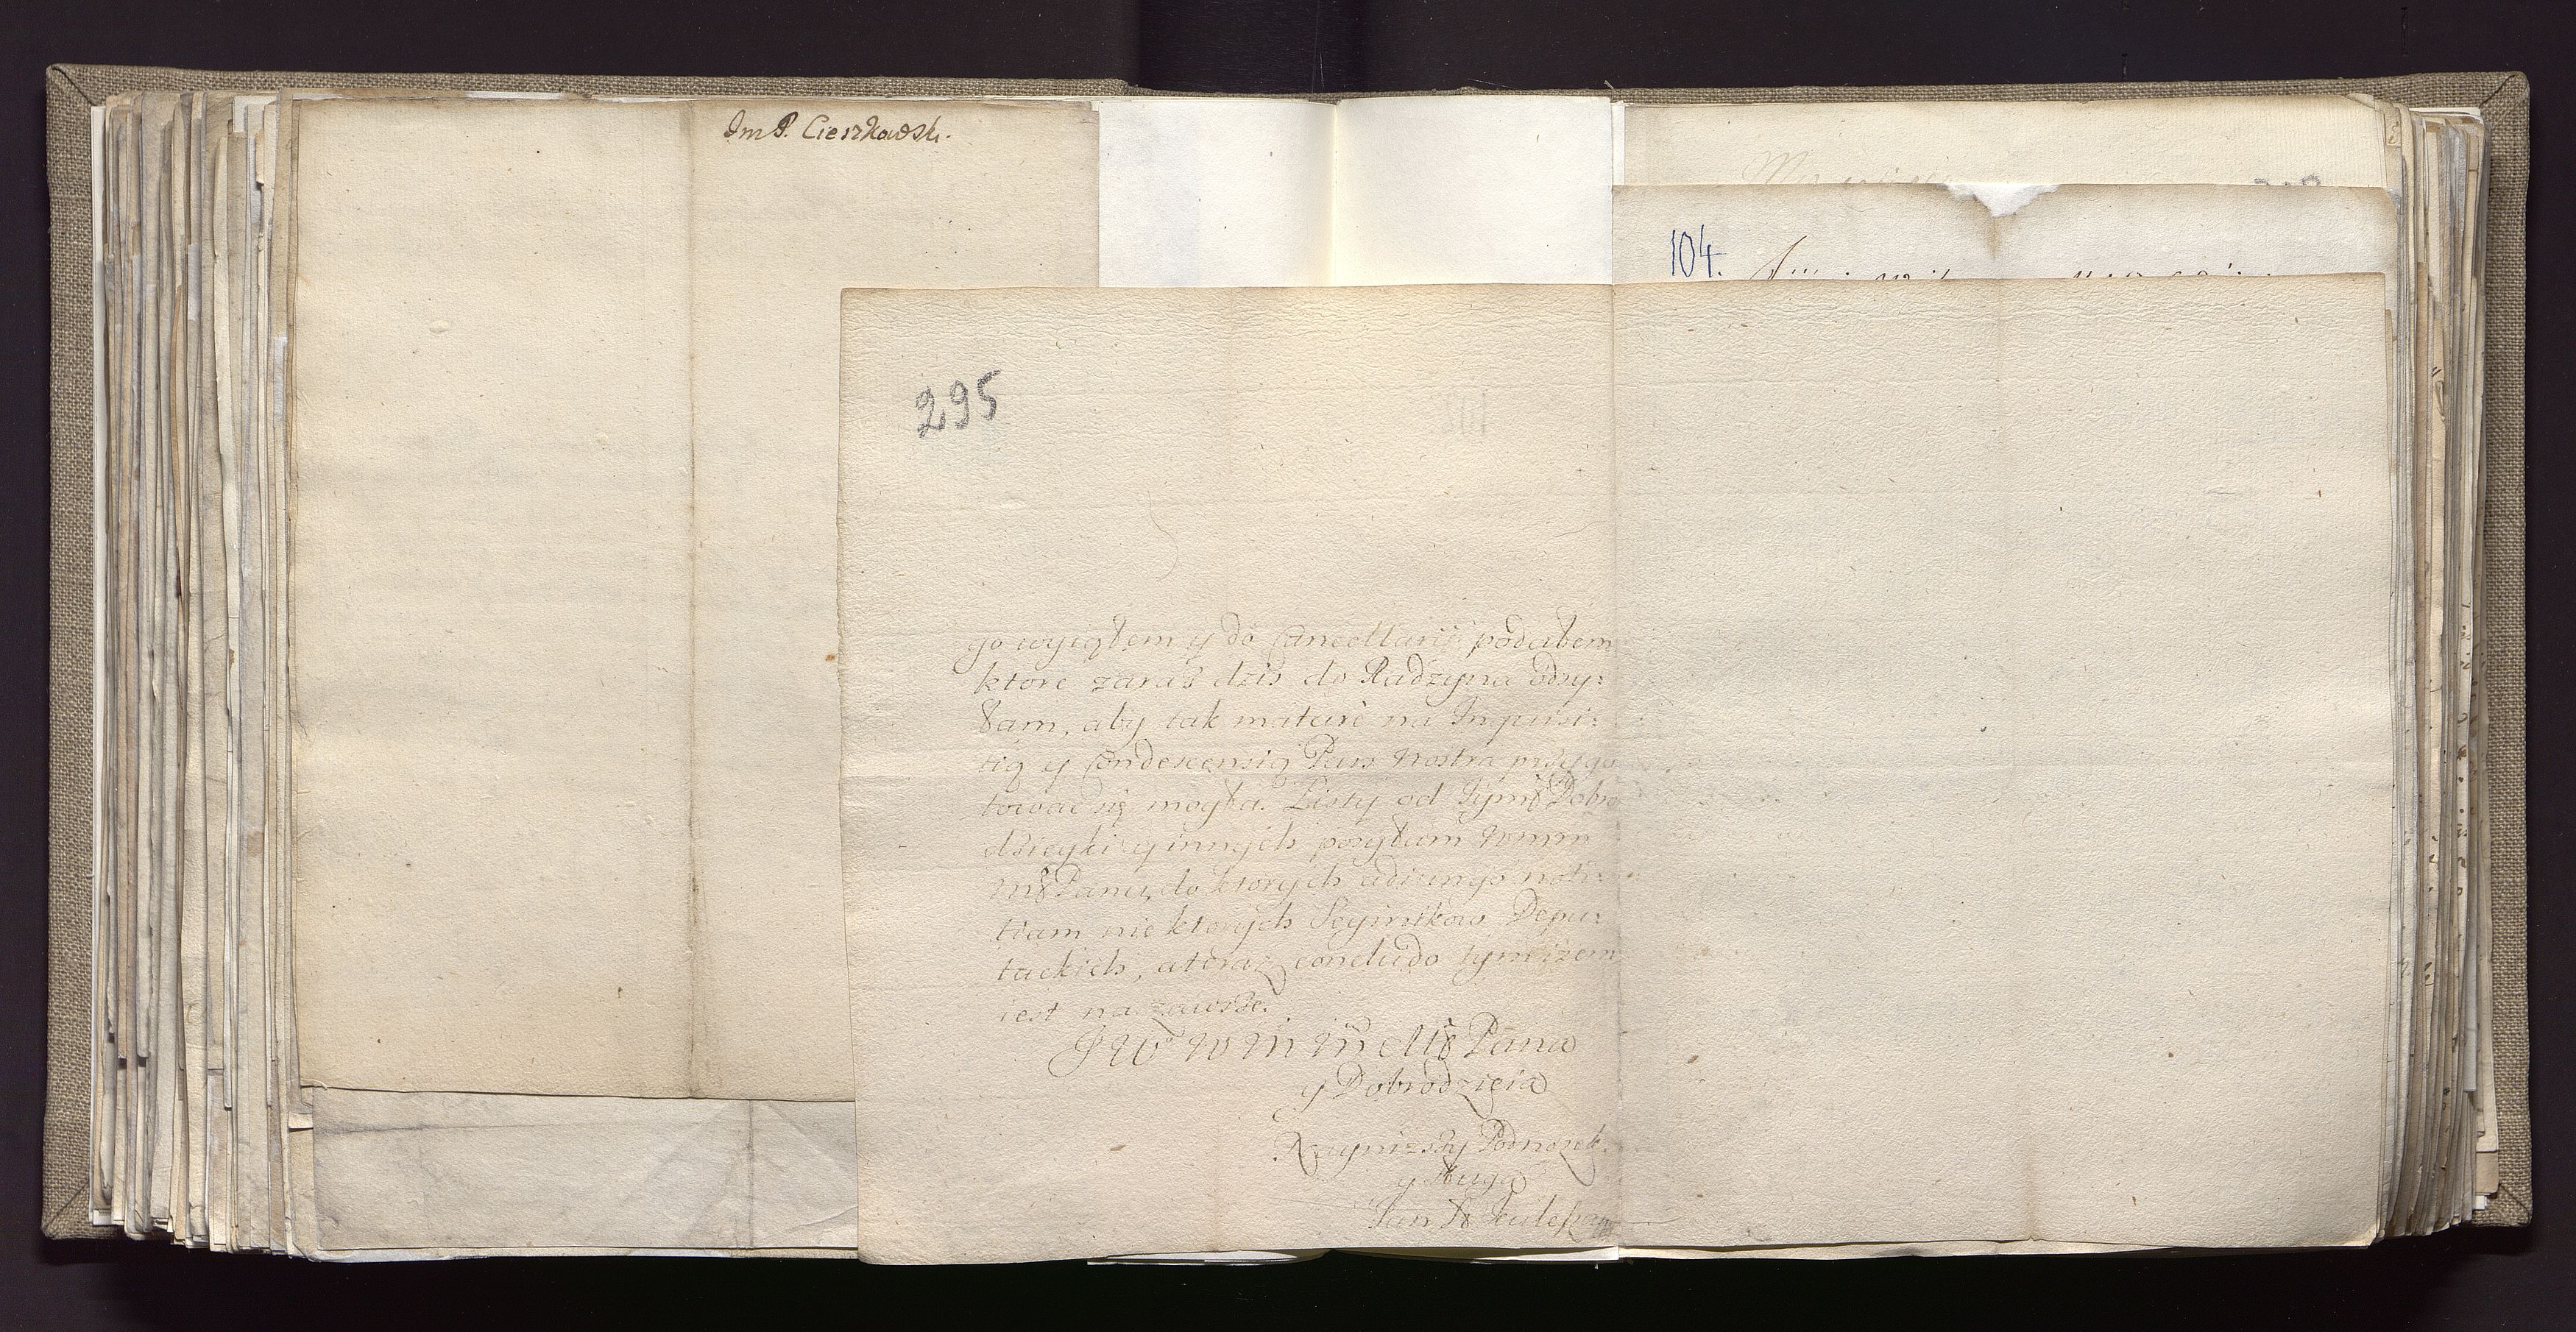 Im P. Cieszkowski.
104.
295
go wyiąłem y do Cancellarii podałem
ktore zaraz dzis do Radzyna odsy:
łam, aby tak maturè na Inquisi:
tią y Condescensią Pars nostra przygo
tować się mogła. Listy od Jeymś Dobro
dzieyki y innych posyłam WMM
Mś Panu, do ktorych adiungo noti:
tiam niektorych Seymikow Depu:
tackich, a teraz concludo tym iżem
iest na zawsze.
JWo W M M Mś Pana
y Dobrodzieia
Nayniższy Podnożek
y sługa
Jan